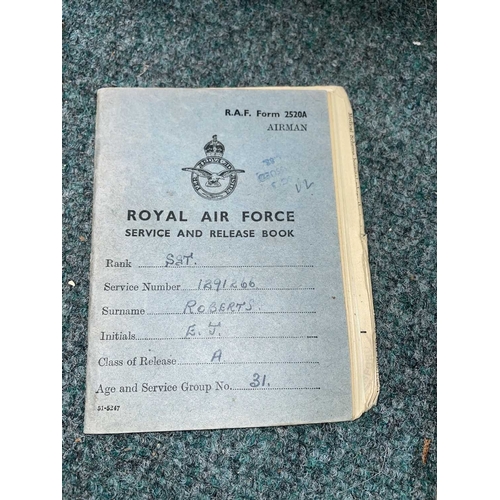 R.A.F. Form 2520A
AIRMAN
ROYAL AIR FORCE
SERVICE AND RELEASE BOOK
Rank SGT.
Service Number 1291266
Surname ROBERTS.
Initials E. J.
Class of Release A
Age and Service Group No. 31.
51-5247